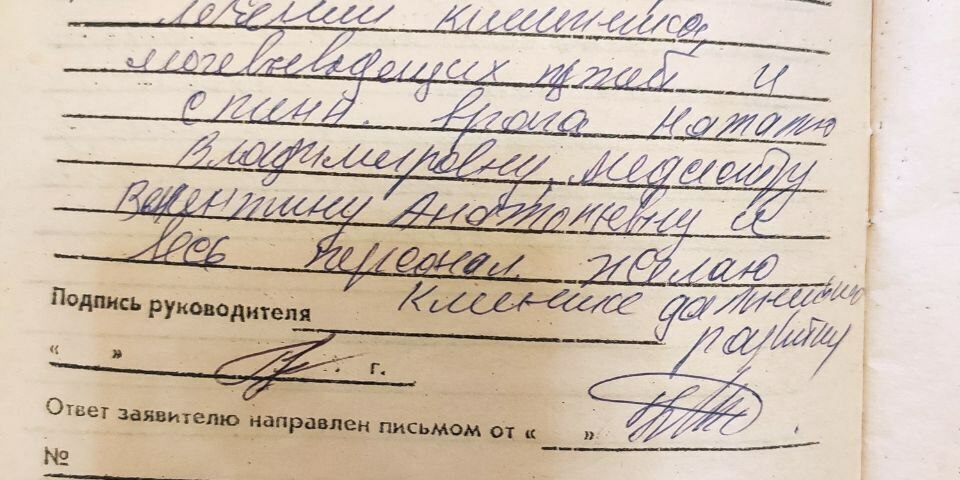 лечении кишечника,
мочевыводящих путей и
спины. врача Наталью
Владимировну, медсестру
Валентину Анатольевну и
весь персонал. Желаю
клинике дальнейшего
развития
Подпись руководителя
« » г.
Ответ заявителю направлен письмом от « » .
№